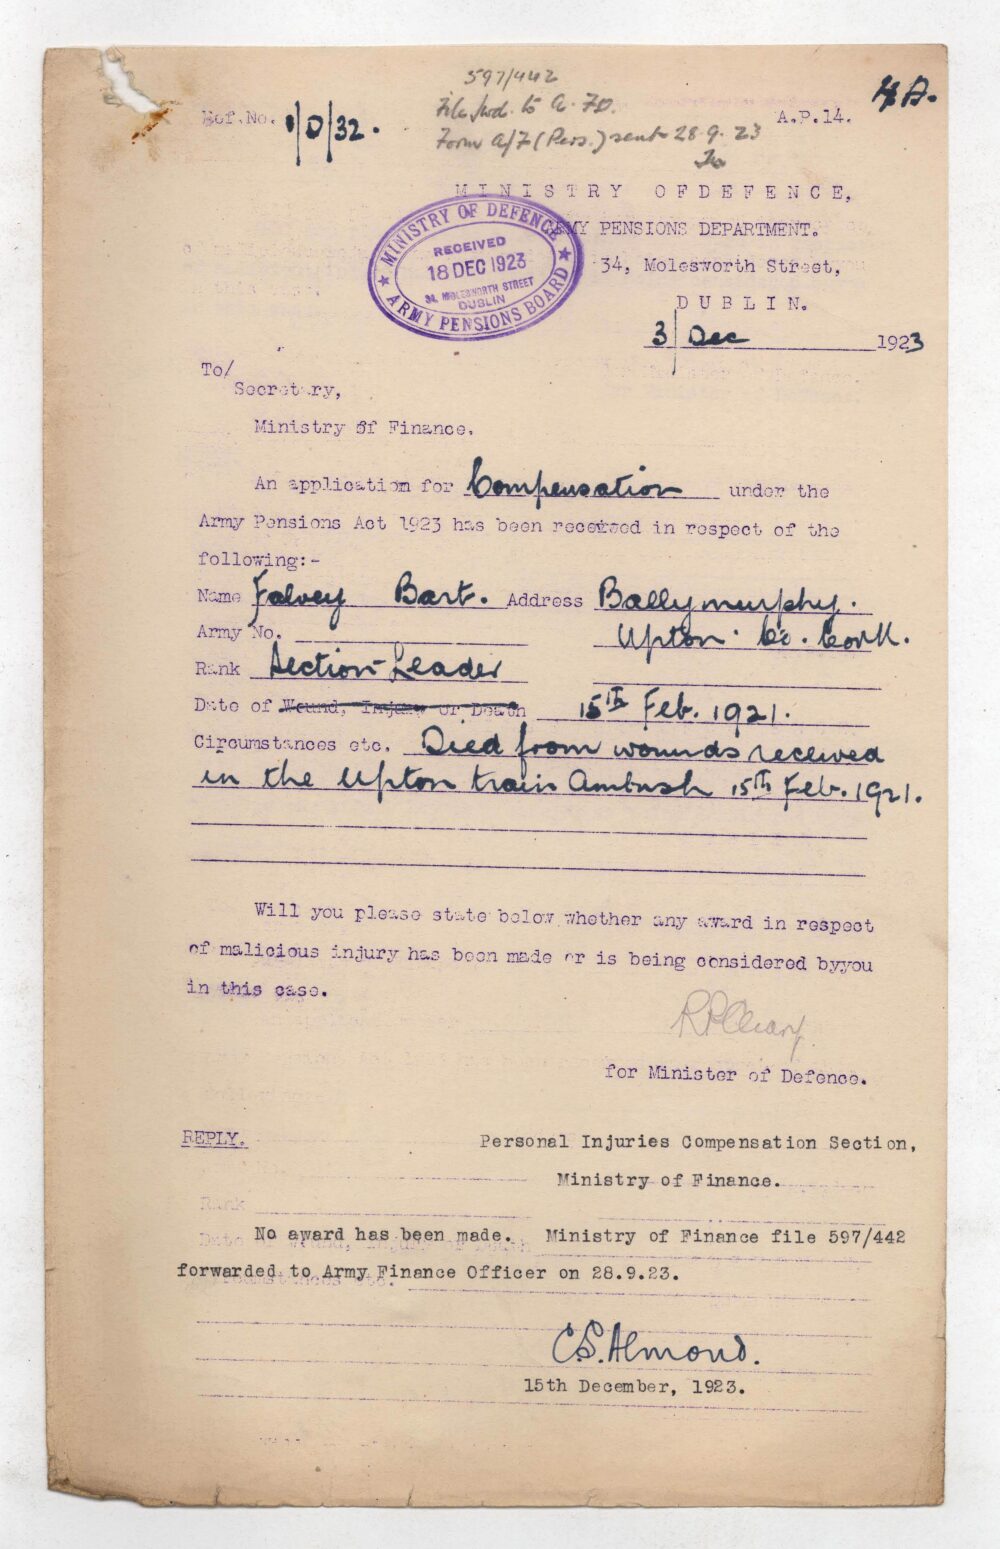 597/442
File fwd. to A. FO.
Form A/F (Pers.) sent 28.9.23
4A.
Ref.No. 1/D/32.
A.P.14.
MINISTRY OFDEFENCE,
ARMY PENSIONS DEPARTMENT.
34, Molesworth Street,
DUBLIN.
MINISTRY OF DEFENCE
RECEIVED
18 DEC 1923
34, MOLESWORTH STREET
DUBLIN
ARMY PENSIONS BOARD
3/Dec 1923
To/
Secretary,
Ministry of Finance.
An application for Compensation under the
Army Pensions Act 1923 has been received in respect of the
following:-
Name Falvey Bart. Address Ballymurphy.
Army No. Upton. Co. Cork.
Rank Section-Leader
Date of Wound, Injury or Death 15th Feb. 1921.
Circumstances etc. Died from wounds received
in the Upton train Ambush 15th Feb. 1921.
Will you please state below whether any award in respect
of malicious injury has been made or is being considered byyou
in this case.
for Minister of Defence.
REPLY. Personal Injuries Compensation Section,
Ministry of Finance.
No award has been made. Ministry of Finance file 597/442
forwarded to Army Finance Officer on 28.9.23.
C.S. Almond.
15th December, 1923.